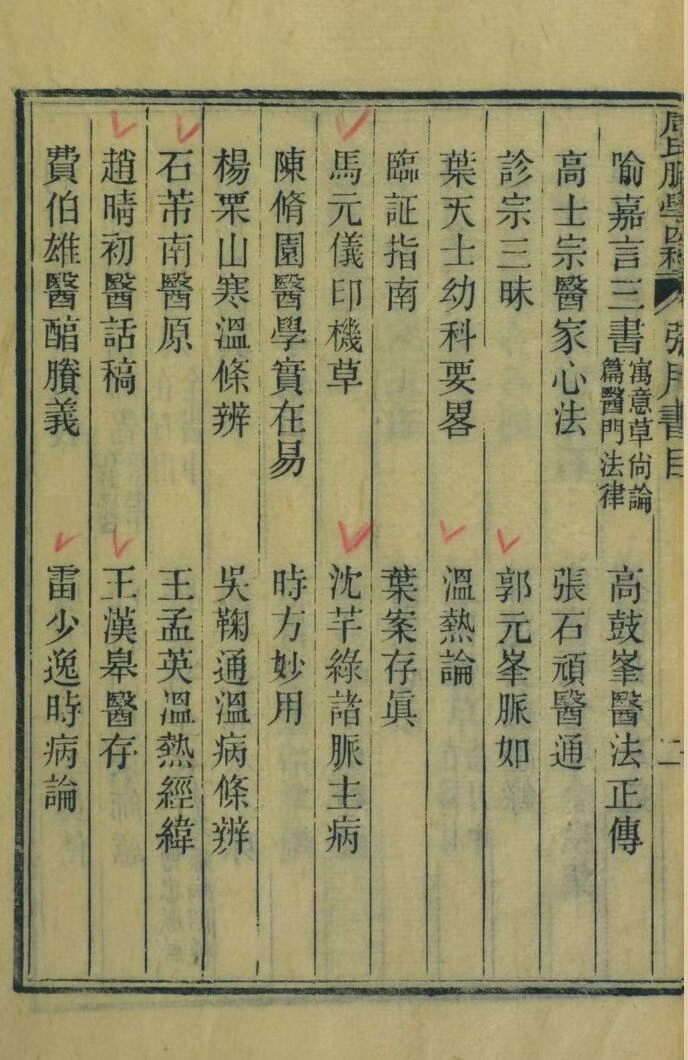 喻嘉言三書寓意草尚論篇醫門法律　高鼓峯醫法正傳
高士宗醫家心法　張石頑醫通
診宗三昧　郭元峯脈如
葉天士幼科要畧　溫熱論
臨証指南　葉案存眞
馬元儀印機草　沈芊綠諸脈主病
陳脩園醫學實在易　時方妙用
楊栗山寒溫條辨　吳鞠通溫病條辨
石芾南醫原　王孟英溫熱經緯
趙晴初醫話稿　王漢皋醫存
費伯雄醫醇賸義　雷少逸時病論